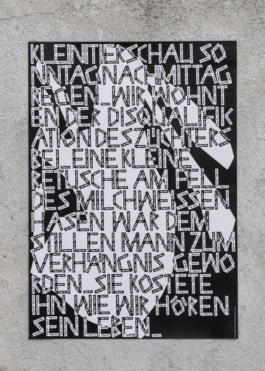 KLEINTIERSCHAU SO
NNTAGNACHMITTAG
REGEN_ WIR WOHNT
EN DER DISQUALIFIK
ATION DES ZÜCHTERS
BEI_ EINE KLEINE
RETUSCHE AM FELL
DES MILCHWEISSEN
HASEN WAR DEM
STILLEN MANN ZUM
VERHÄNGNIS GEWO
RDEN_ SIE KOSTETE
IHN WIE WIR HÖREN
SEIN LEBEN_